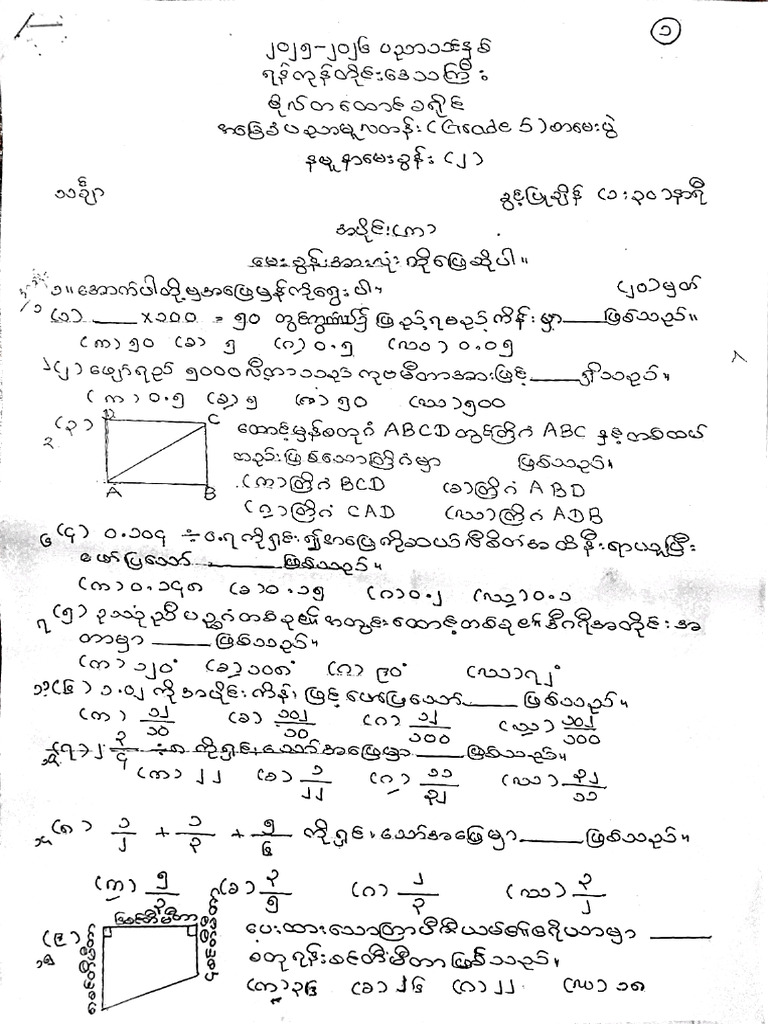 ၁
၂၀၂၅-၂၀၂၆ ပညာသင်နှစ်
ရန်ကုန်တိုင်းဒေသကြီး
ဗိုလ်တထောင်ခရိုင်
အခြေခံပညာမူလတန်း (Grade 5) စာမေးပွဲ
နမူနာမေးခွန်း (၂)
သင်္ချာ ခွင့်ပြုချိန် (၁:၃၀) နာရီ
အပိုင်း(က)
မေးခွန်းအားလုံးကိုဖြေဆိုပါ။
၁။ အောက်ပါတို့မှအဖြေမှန်ကိုရွေးပါ။ (၂၀)မှတ်
(၁) ____ x၁၀၀ = ၅၀ တွင်ကွက်လပ်၌ ဖြည့်ရမည့်ကိန်းမှာ____ဖြစ်သည်။
(က) ၅၀ (ခ) ၅ (ဂ) ၀.၅ (ဃ) ၀.၀၅
(၂) ဖျော်ရည် ၅၀၀၀ လီတာသည် ကုဗမီတာအားဖြင့်____ရှိသည်။
(က) ၀.၅ (ခ) ၅ (ဂ) ၅၀ (ဃ) ၅၀၀
(၃) D C ထောင့်မှန်စတုဂံ ABCD တွင်တြိဂံ ABC နှင့်ထပ်တူ
တူညီဖြစ်သောတြိဂံမှာ ဖြစ်သည်။
(က) တြိဂံ BCD (ခ) တြိဂံ ABD
A B (ဂ) တြိဂံ CAD (ဃ) တြိဂံ ADB
(၄) ၀.၁၀၄ ÷ ၀.၇ ကိုရှင်း၍အဖြေကိုဆယ်လီစိတ်အထိနီးရာယူပြီး
ဖော်ပြသော် ____ဖြစ်သည်။
(က) ၀.၁၄၈ (ခ) ၀.၁၅ (ဂ) ၀.၂ (ဃ) ၀.၁
(၅) ဥဿုံညီပဉ္စဂံတစ်ခု၏ အတွင်းထောင့်တစ်ခု၏ဒီဂရီအတိုင်းအ
တာမှာ ____ ဖြစ်သည်။
(က) ၁၂၀° (ခ) ၁၀၈° (ဂ) ၉၀° (ဃ) ၇၂°
(၆) ၁.၀၂ ကို အပိုင်းကိန်းဖြင့် ဖော်ပြသော်____ ဖြစ်သည်။
(က) ၁၂/၁၀ (ခ) ၁၀၂/၁၀ (ဂ) ၁၂/၁၀၀ (ဃ) ၁၀၂/၁၀၀
(၇) ၂ ၃/၄ ÷ ၈ ကိုရှင်းသော်အဖြေမှာ ____ ဖြစ်သည်။
(က) ၂၂ (ခ) ၁/၂၂ (ဂ) ၁၁/၃၂ (ဃ) ၃၂/၁၁
(၈) ၁/၂ + ၁/၃ + ၅/၆ ကိုရှင်းသော်အဖြေမှာ ____ ဖြစ်သည်။
(က) ၅/၃ (ခ) ၃/၅ (ဂ) ၂/၃ (ဃ) ၃/၂
(၉) ပေးထားသောတြာပီဇီယမ်၏ဧရိယာမှာ ____
စတုရန်းစင်တီမီတာဖြစ်သည်။
(က) ၃၆ (ခ) ၂၆ (ဂ) ၂၂ (ဃ) ၁၈